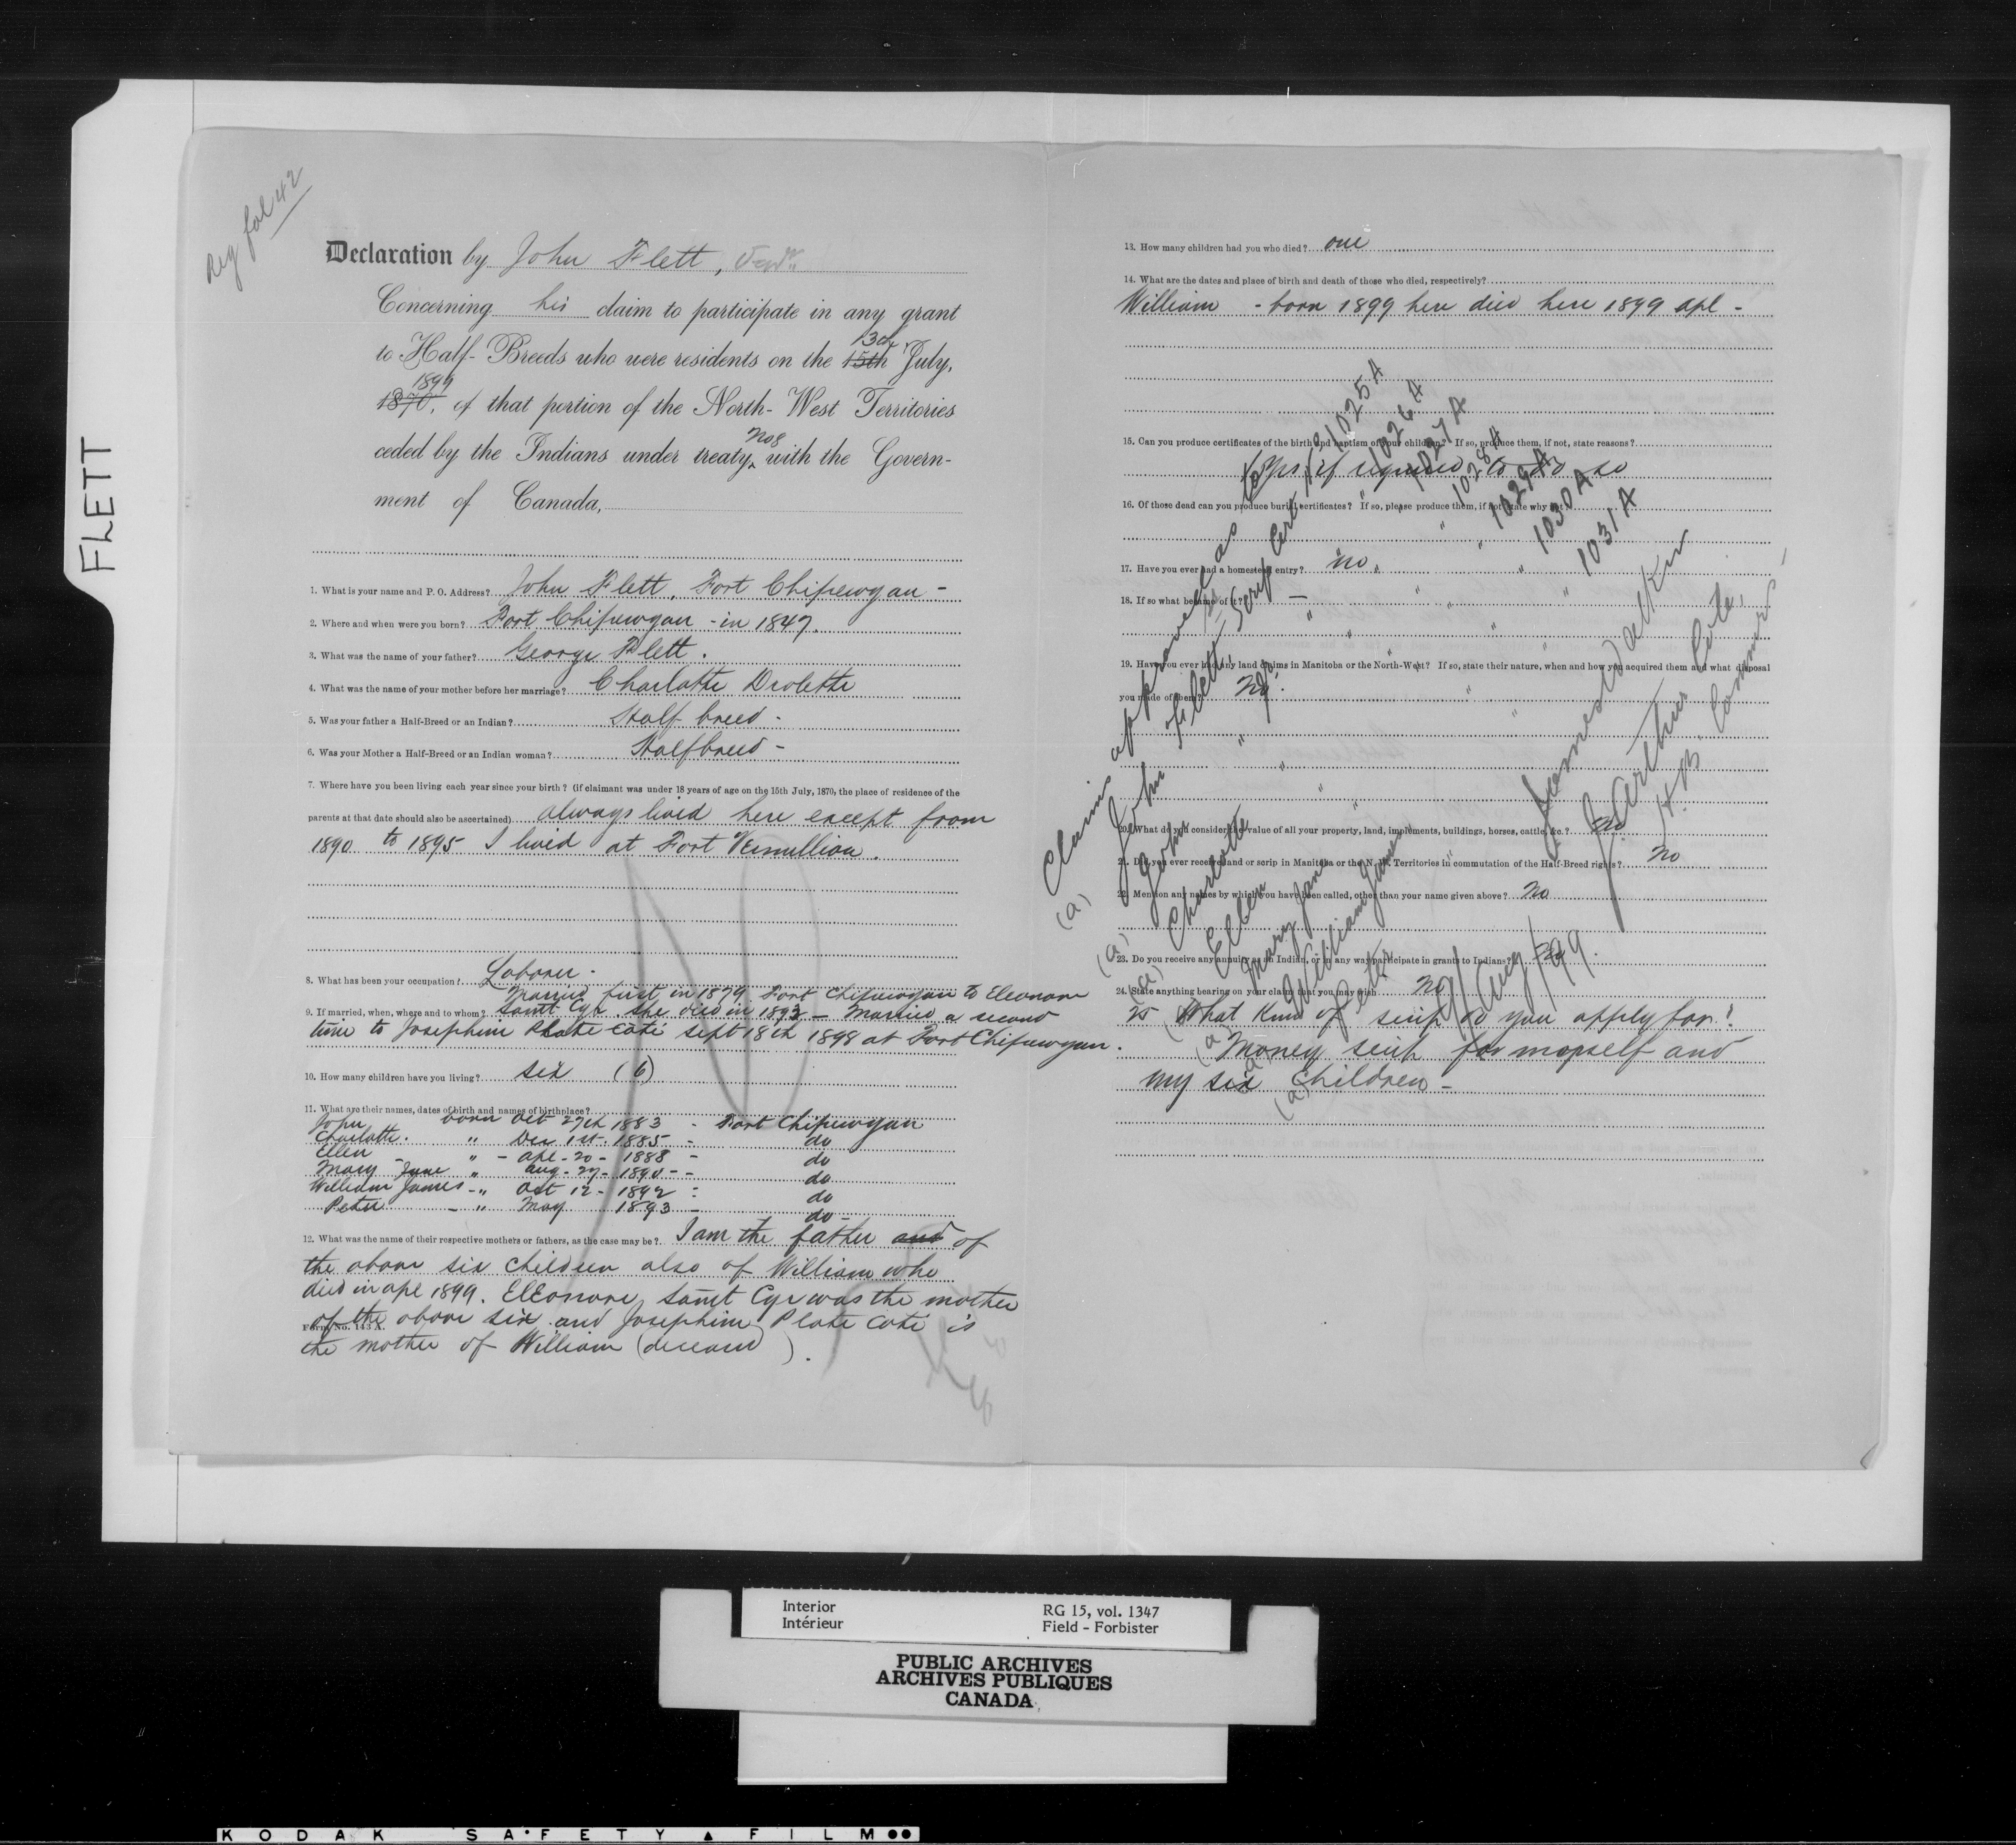 FLETT
Reg fol 42
Declaration by John Flett, Senr.
Concerning his claim to participate in any grant
to Half-Breeds who were residents on the 15th 13th July,
1870, 1899 of that portion of the North-West Territories
ceded by the Indians under treaty No 8 with the Govern-
ment of Canada,
1. What is your name and P. O. Address? John Flett, Fort Chipewyan -
2. Where and when were you born? Fort Chipewyan - in 1847.
3. What was the name of your father? George Flett.
4. What was the name of your mother before her marriage? Charlotte Drolette
5. Was your father a Half-Breed or an Indian? Half breed -
6. Was your Mother a Half-Breed or an Indian woman? Halfbreed -
7. Where have you been living each year since your birth? (if claimant was under 18 years of age on the 15th July, 1870, the place of residence of the
parents at that date should also be ascertained) always lived here except from
1890 to 1895 I lived at Fort Vermillion.
8. What has been your occupation? Laborer -
Married first in 1879 Fort Chipewyan to Eleonore
9. If married, when, where and to whom? Saint Cyr she died in 1893 - Married a second
time to Josephine Plate Coté Sept 18th 1898 at Fort Chipewyan.
10. How many children have you living? six (6)
11. What are their names, dates of birth and names of birthplace?
John born Oct 27th 1883 - Fort Chipewyan
Charlotte. " Dec 1st - 1885 - do
Ellen - " - Apl - 20 - 1888 - do
Mary Jane " Aug - 27 - 1890 - - do
William James - " Oct 12 - 1892 - do
Peter - " May 1893 - do -
12. What was the name of their respective mothers or fathers, as the case may be? I am the father and of
the above six children also of William who
died in apl 1899. Eleonore Saint Cyr was the mother
of the above six and Josephine Plate Coté is
Form No. 143 A.
the mother of William (deceased).
13. How many children had you who died? one
14. What are the dates and place of birth and death of those who died, respectively?
William - born 1899 here died here 1899 apl -
15. Can you produce certificates of the birth and baptism of your children? If so, produce them, if not, state reasons?
Yes if required to do so
16. Of those dead can you produce burial certificates? If so, please produce them, if not state why not
17. Have you ever had a homestead entry? no
18. If so what became of it? —
19. Have you ever had any land claims in Manitoba or the North-West? If so, state their nature, when and how you acquired them and what disposal
you made of them? No.
20. What do you consider the value of all your property, land, implements, buildings, horses, cattle, &c.? no
21. Did you ever receive land or scrip in Manitoba or the N. W. Territories in commutation of the Half-Breed rights? no
22. Mention any names by which you have been called, other than your name given above? No
23. Do you receive any annuity as an Indian, or in any way participate in grants to Indians? No
24. State anything bearing on your claim that you may wish no
25 What kind of scrip do you apply for?
Money scrip for mopself and
my six children -
Claims approved as
(a) John Flett, Scrip Cert 1025 A
(a) John " 1026 A
(a) Charlotte " 1027 A
Ellen " 1028 A
(a) Mary Jane " 1029 A
William James " 1030 A
(a) Peter " 1031 A
James Walker
J. Arthur Coté,
H.B. Commrs.
Aug/99.
Interior
Intérieur
RG 15, vol. 1347
Field - Forbister
PUBLIC ARCHIVES
ARCHIVES PUBLIQUES
CANADA
KODAK SAFETY FILM